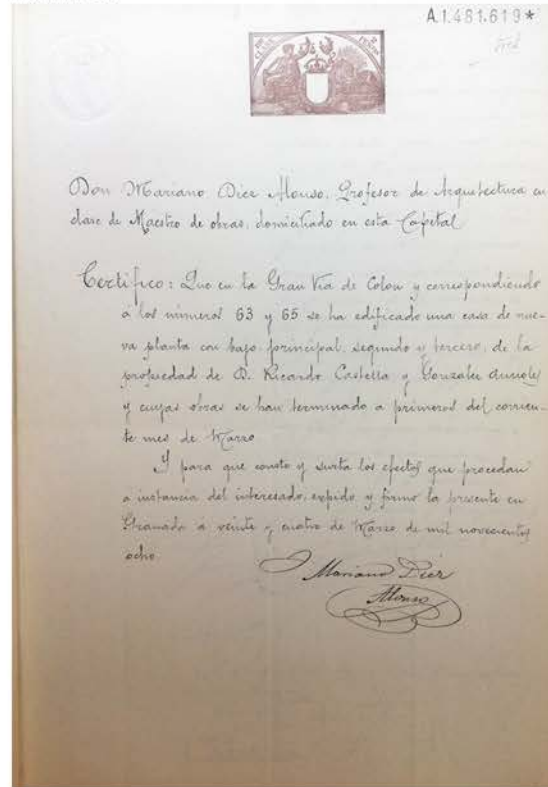 A.1.481.619*
Don Mariano Diez Alonso, Profesor de Arquitectura en
clase de Maestro de obras, domiciliado en esta Capital
Certifico: Que en la Gran Via de Colon y correspondiendo
á los números 63 y 65 se ha edificado una casa de nue-
va planta con bajo, principal, segundo y tercero, de la
propiedad de D. Ricardo Castella y Gonzalez
y cuyas obras se han terminado a primeros del corrien-
te mes de Marzo
Y para que conste y surta los efectos que procedan
a instancia del interesado, expido y firmo la presente en
Granada a veinte y cuatro de Marzo de mil novecientos
ocho
Mariano Diez
Alonso